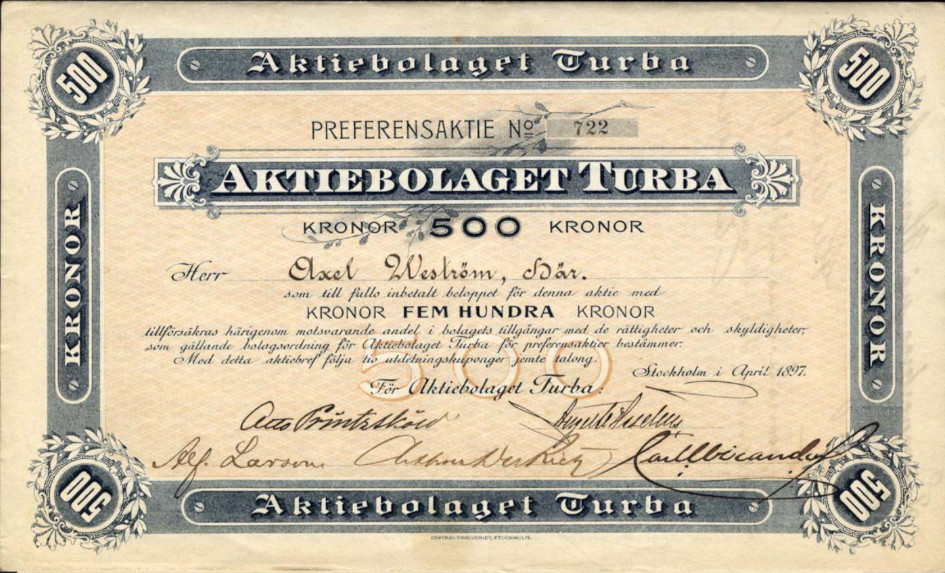 500
Aktiebolaget Turba
500
PREFERENSAKTIE No 722
AKTIEBOLAGET TURBA
KRONOR 500 KRONOR
Herr Axel Weström, Här.
som till fullo inbetalt beloppet för denna aktie med
KRONOR FEM HUNDRA KRONOR
tillförsäkras härigenom motsvarande andel i bolagets tillgångar med de rättigheter och skyldigheter,
som gällande bolagsordning för Aktiebolaget Turba för preferensaktier bestämmer.
Med detta aktiebref följa tio utdelningskuponger jemte talong.
500
Stockholm i April 1897.
För Aktiebolaget Turba:
Alf. Larson
KRONOR
KRONOR
500
Aktiebolaget Turba
500
CENTRAL-TRYCKERIET, STOCKHOLM.